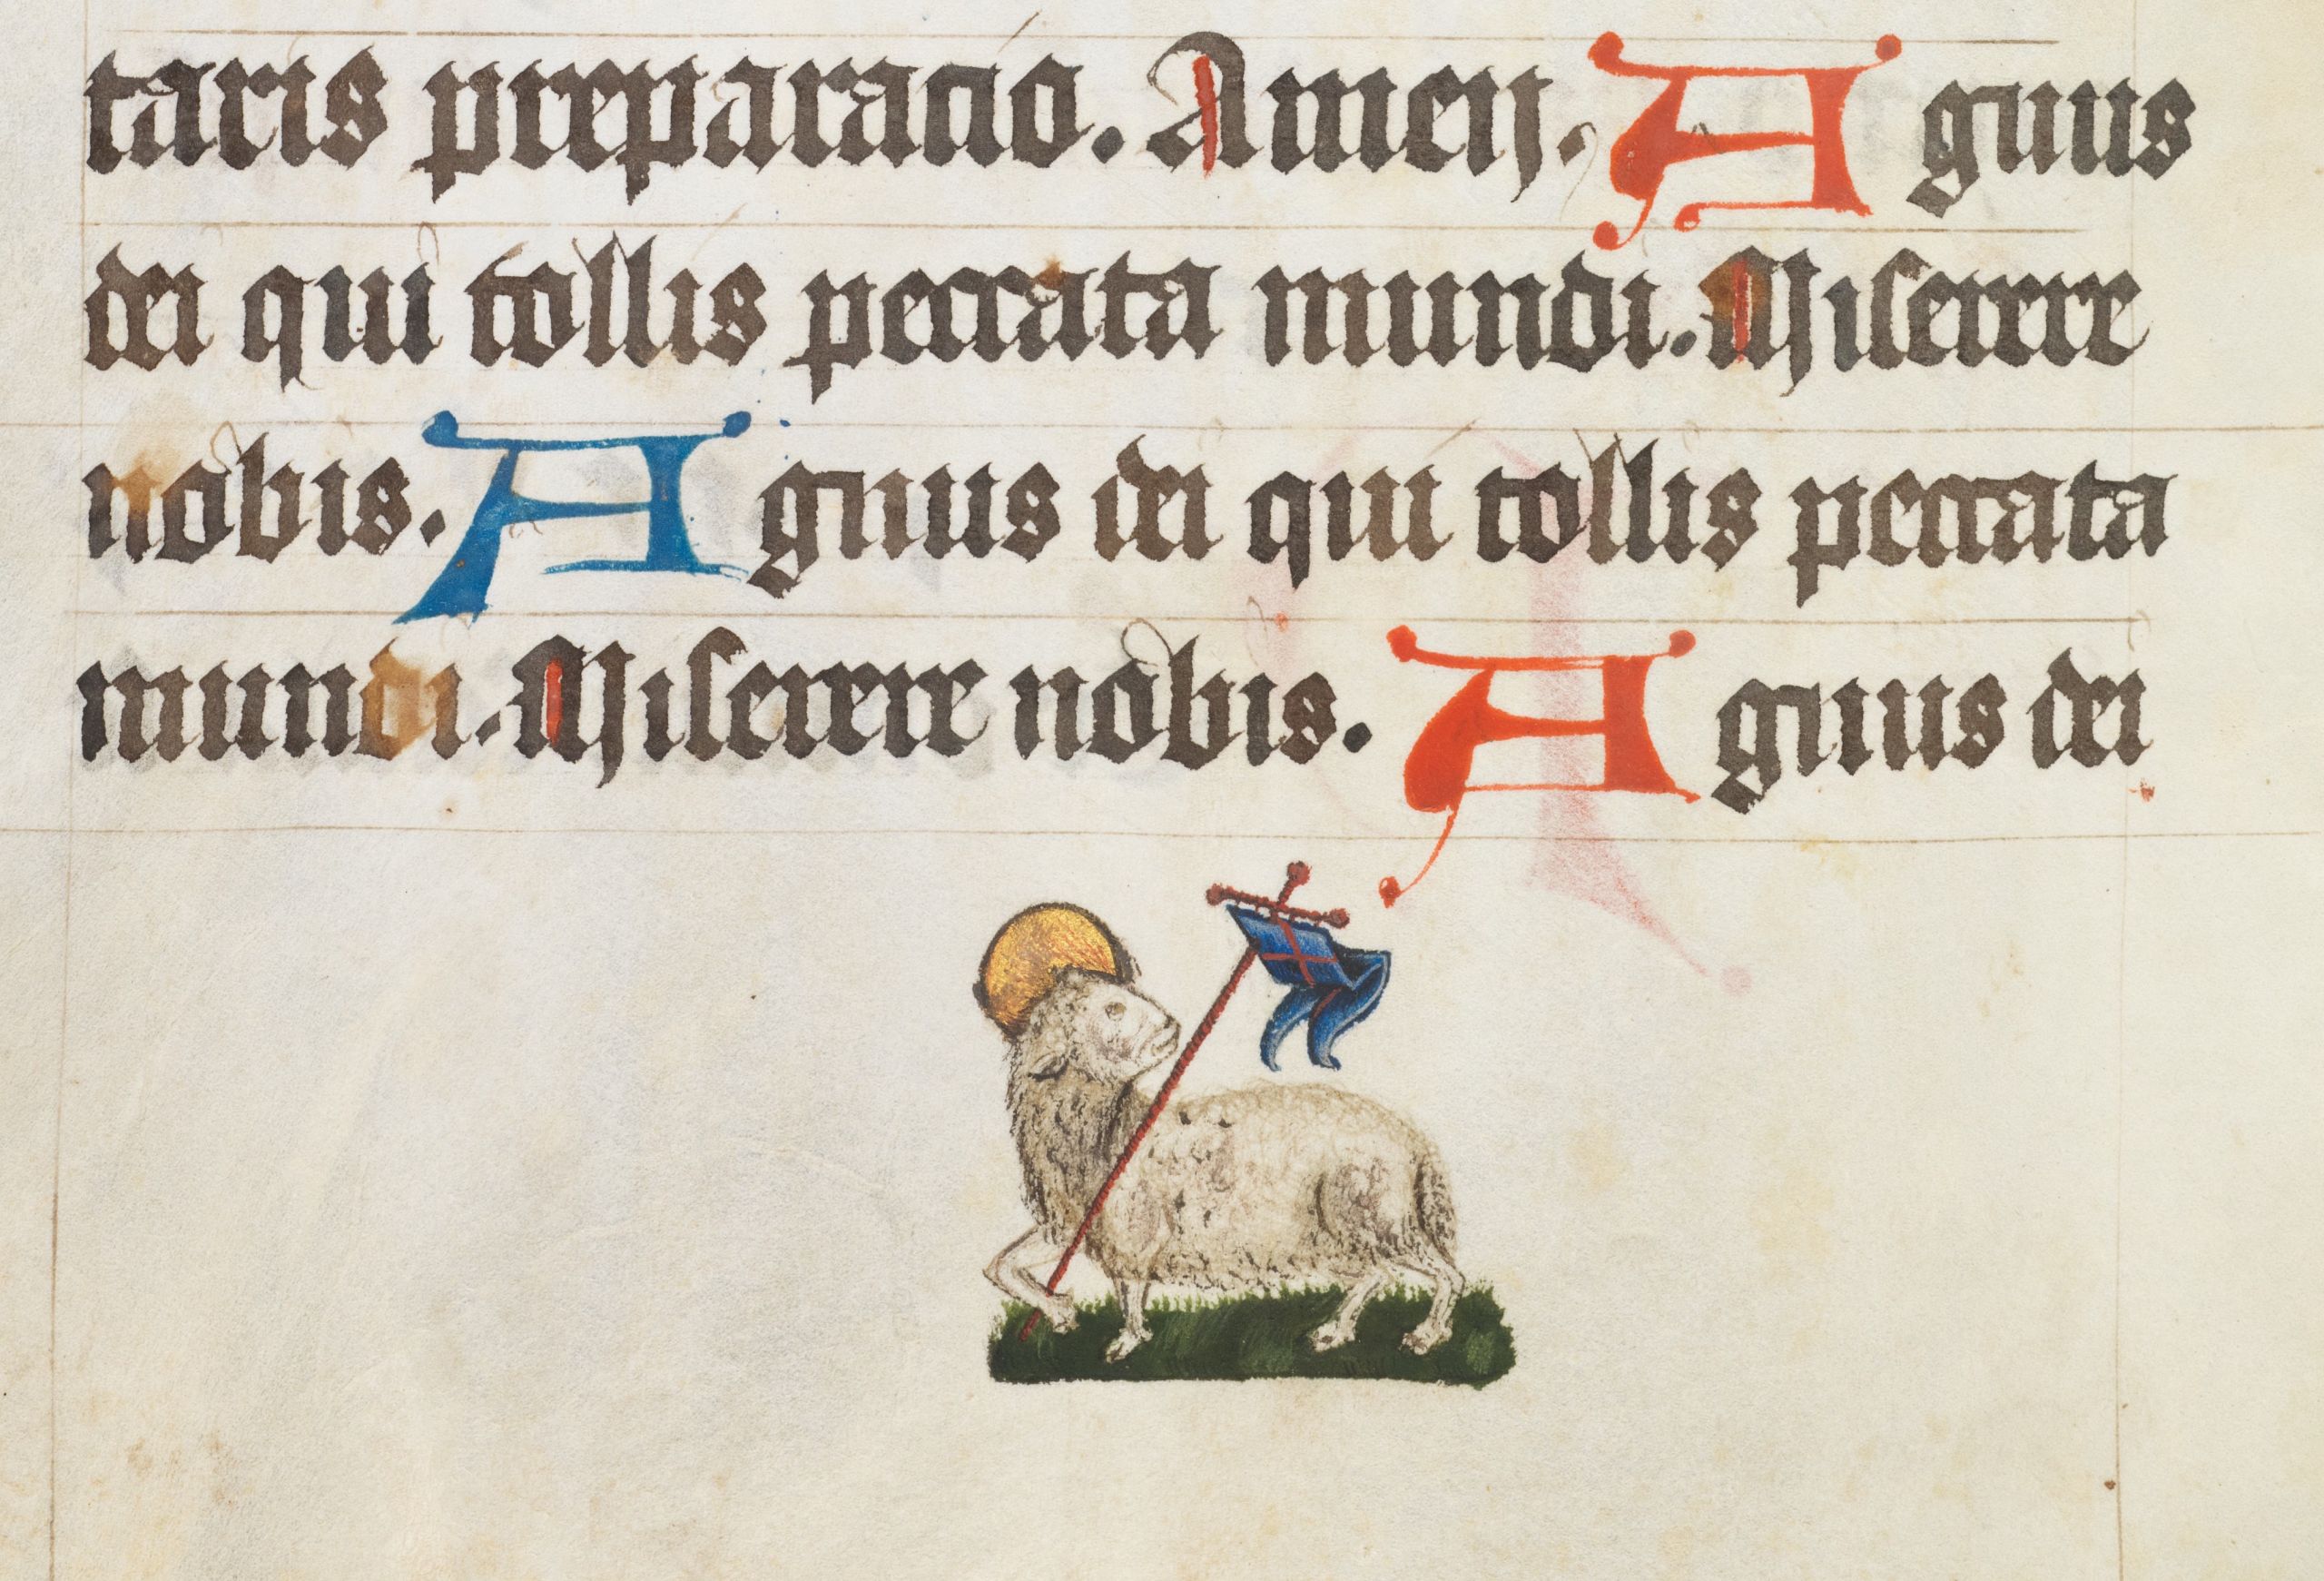 taris preparatio. Amen. Agnus
dei qui tollis peccata mundi. Miserere
nobis. Agnus dei qui tollis peccata
mundi. Miserere nobis. Agnus dei